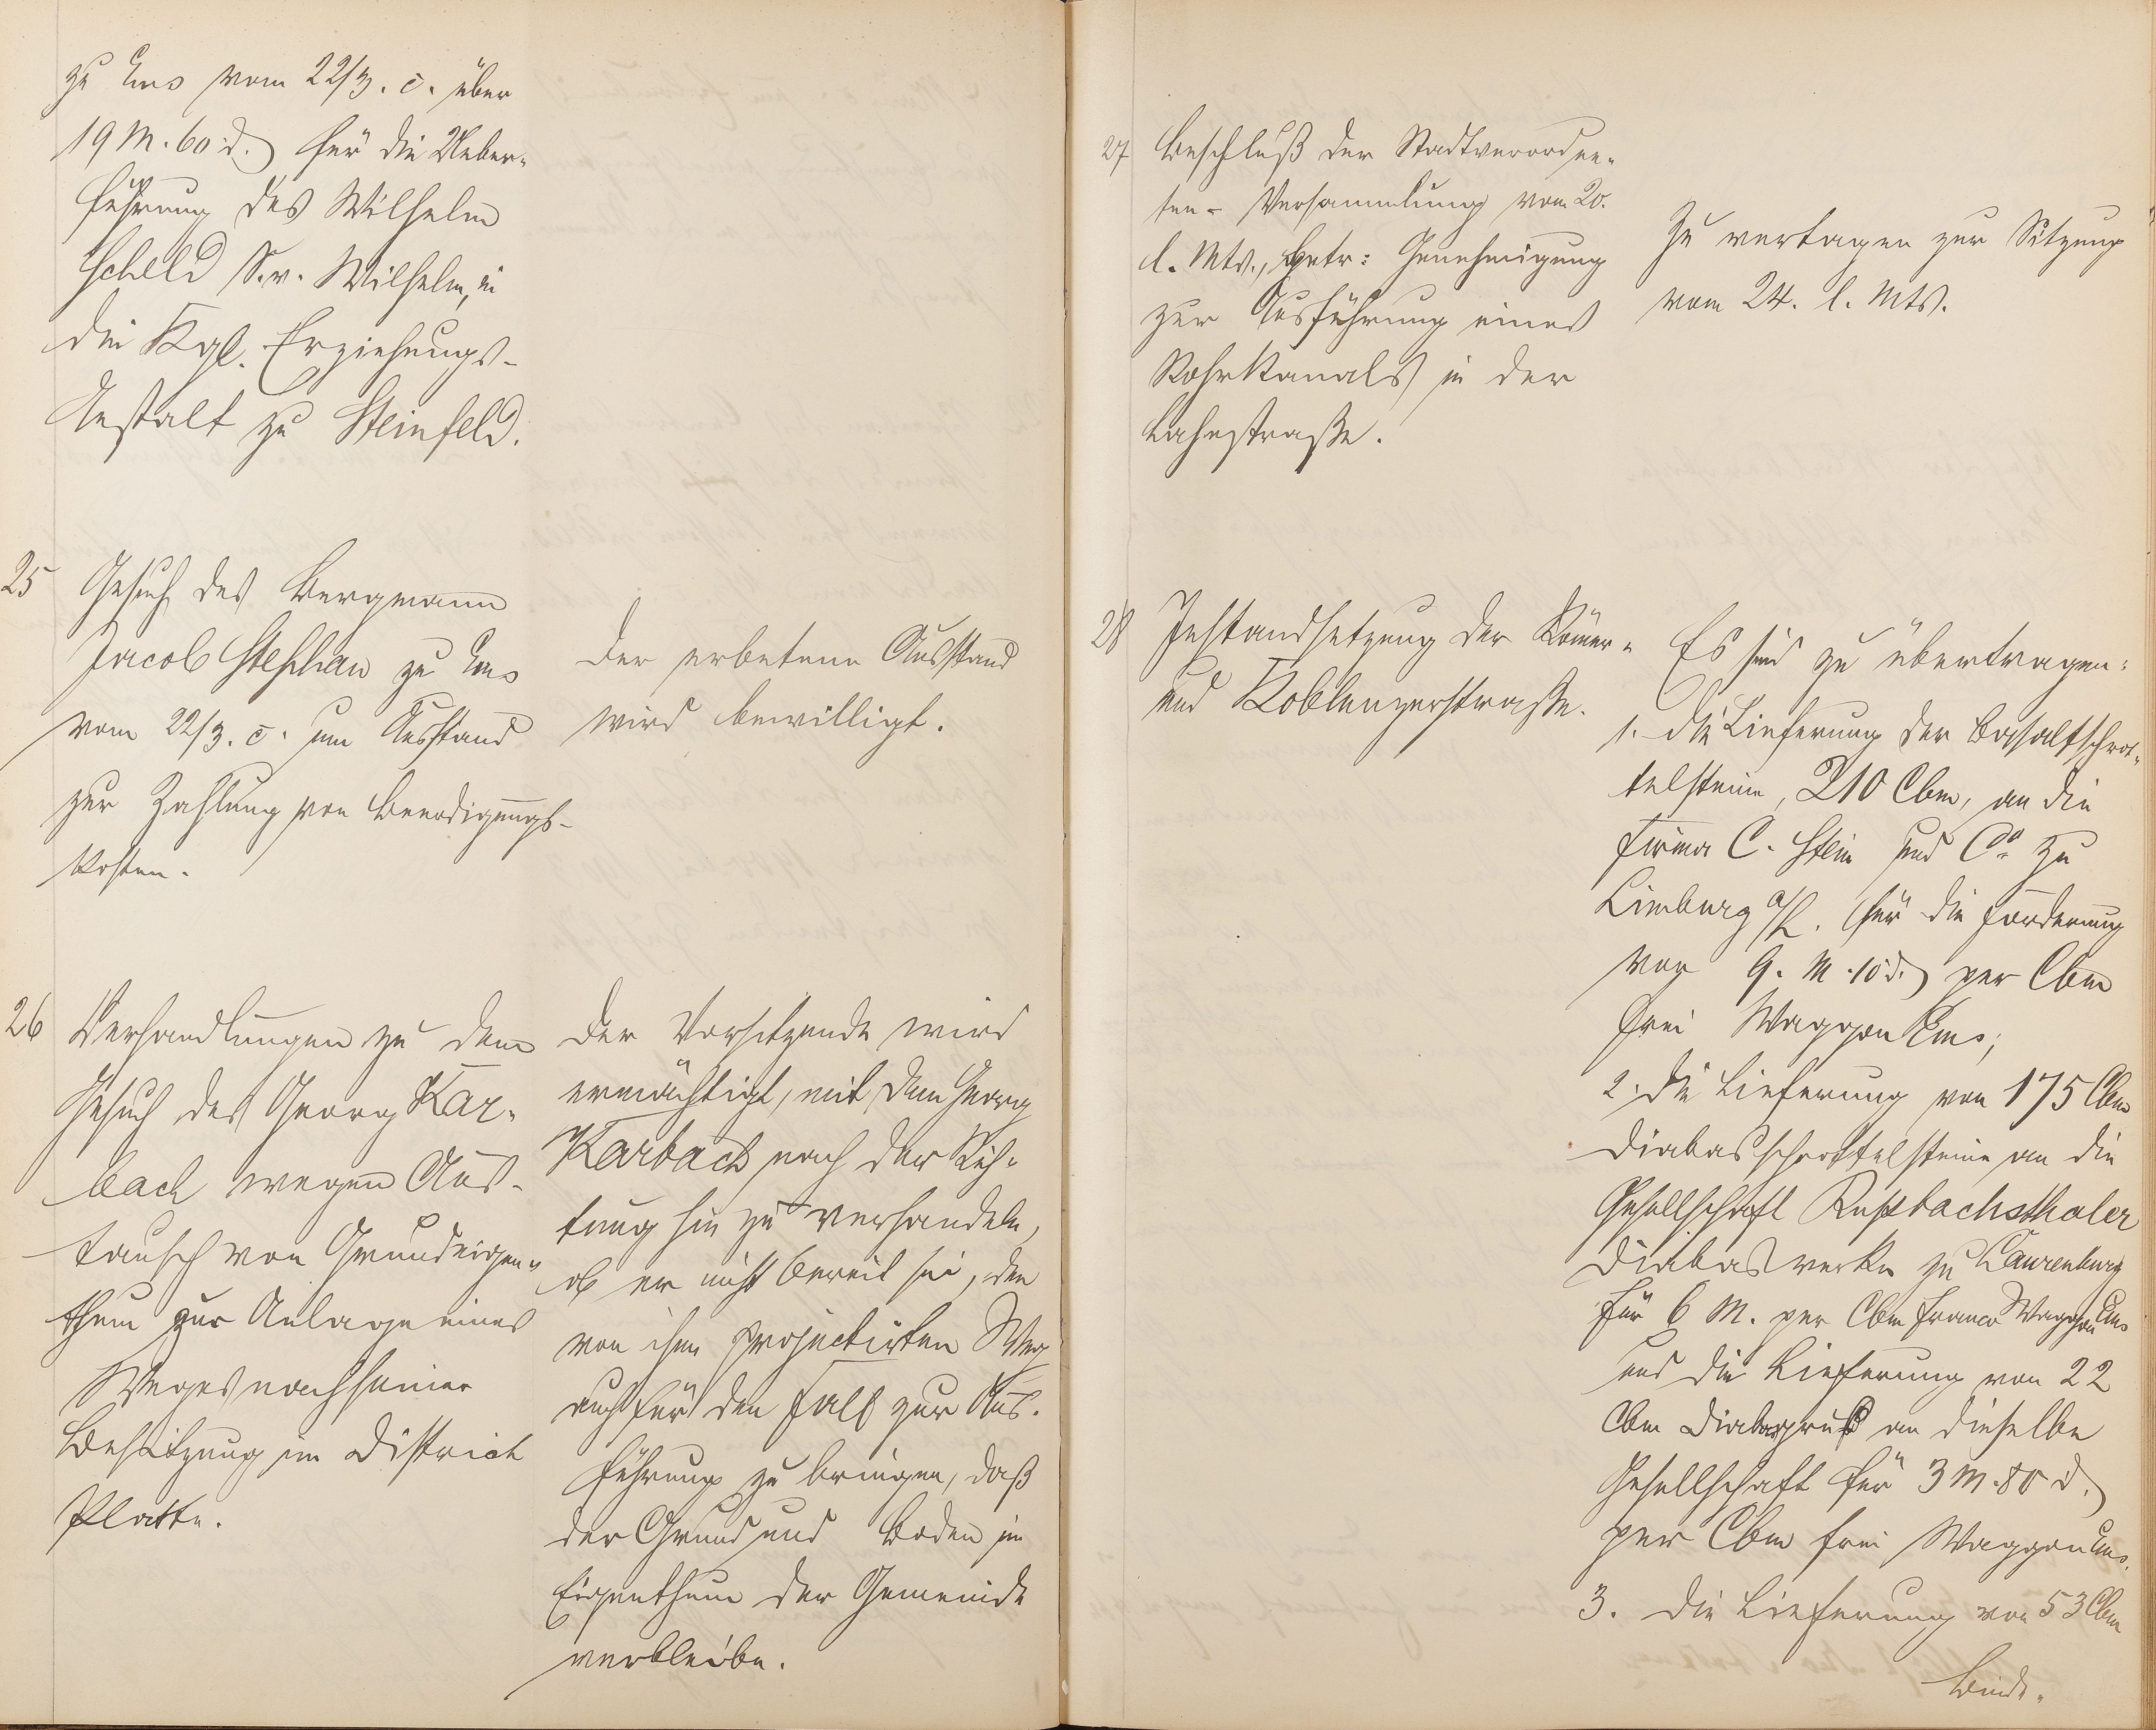 zu Ems vom 22/3. c. über
19 M. 60 d. für die Ueber-
führung des Wilhelm
Scheld S. v. Wilhelm, in
die Kgl. Erziehungs-
Anstalt zu Steinfeld.
25
Gesuch des Bergmann
Jacob Stephan zu Ems
vom 22/3. c. um Ausstand
zur Zahlung von Beerdigungs-
kosten.
Der erbetene Ausstand
wird bewilligt.
26
Verhandlungen zu dem
Gesuch des Georg Kar-
bach wegen Aus-
tausch von Grundeigen-
thum zur Anlage eines
Weges nach seiner
Besitzung im District
Platte.
Der Vorsitzende wird
ermächtigt, mit dem Georg
Karbach nach der Rich-
tung hin zu verhandeln,
ob er nicht bereit sei, den
von ihm projectirten Weg
auch für den Fall zur Aus-
führung zu bringen, daß
der Grund und Boden im
Eigenthum der Gemeinde
verbleibe.
27
Beschluß der Stadtverordne-
ten-Versammlung vom 20.
l. Mts., betr: Genehmigung
zur Ausführung eines
Rohrkanals in der
Lahnstraße.
Zu vertagen zur Sitzung
vom 24. l. Mts.
28
Instandsetzung der Römer-
und Koblenzerstraße.
Es sind zu übertragen:
1. die Lieferung der Basaltschrot-
telsteine, 210 Cbm, an die
Firma C. Stein und Co. zu
Limburg a/L. für die Forderung
von 9. M. 10 d. per Cbm
frei Waggon Ems;
2. die Lieferung von 175 Cbm
Diabasschrottelsteine an die
Gesellschaft Rupbachsthaler
Diabaswerke zu Laurenburg
für 6 M. per Cbm franco Waggon Ems
und die Lieferung von 22
Cbm Diabasgruß an dieselbe
Gesellschaft für 3 M. 80 d.
per Cbm frei Waggon Ems.
3. die Lieferung von 53 Cbm
Binde-